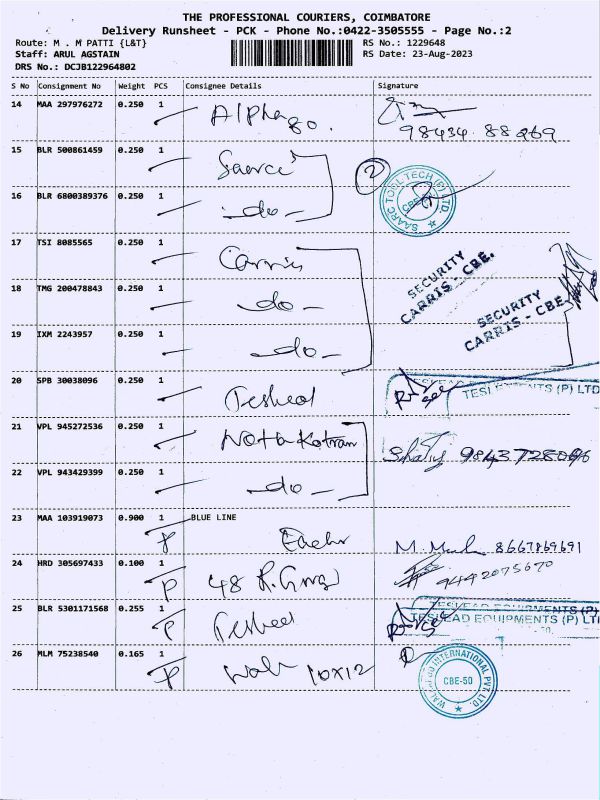 THE PROFESSIONAL COURIERS, COIMBATORE
Delivery Runsheet - PCK - Phone No.:0422-3505555 - Page No.:2
Route: M . M PATTI {L&T}
RS No.: 1229648
Staff: ARUL AGSTAIN
RS Date: 23-Aug-2023
DRS No.: DCJB122964802
S No Consignment No Weight PCS Consignee Details Signature
14 MAA 297976272 0.250 1
98434 88269
15 BLR 500861459 0.250 1 Saarc
2
16 BLR 6800389376 0.250 1 -do-
SAARC TOOL TECH (P) LTD.
17 TSI 8085565 0.250 1 Carris
SECURITY
CARRIS - CBE.
18 TMG 200478843 0.250 1 -do-
SECURITY
CARRIS - CBE
19 IXM 2243957 0.250 1 -do-
20 SPB 30038096 0.250 1 Teslead
21 VPL 945272536 0.250 1
22 VPL 943429399 0.250 1 -do-
23 MAA 103919073 0.900 1 BLUE LINE
P 8667869691
24 HRD 305697433 0.100 1
P 48 9442075670
25 BLR 5301171568 0.255 1 Teslead
P
TESLEAD EQUIPMENTS (P) LTD
26 MLM 75238540 0.165 1
P 10x12
INTERNATIONAL PVT. LTD.
CBE-50